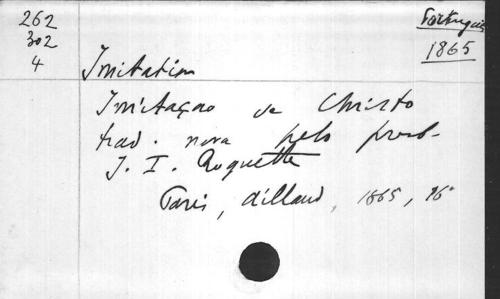 262
302
4
Portugais
1865
Imitation
Imitaçao de Christo
trad. nova pelo presb.
J. I. Roquette
Paris, Aillaud, 1865, 16°